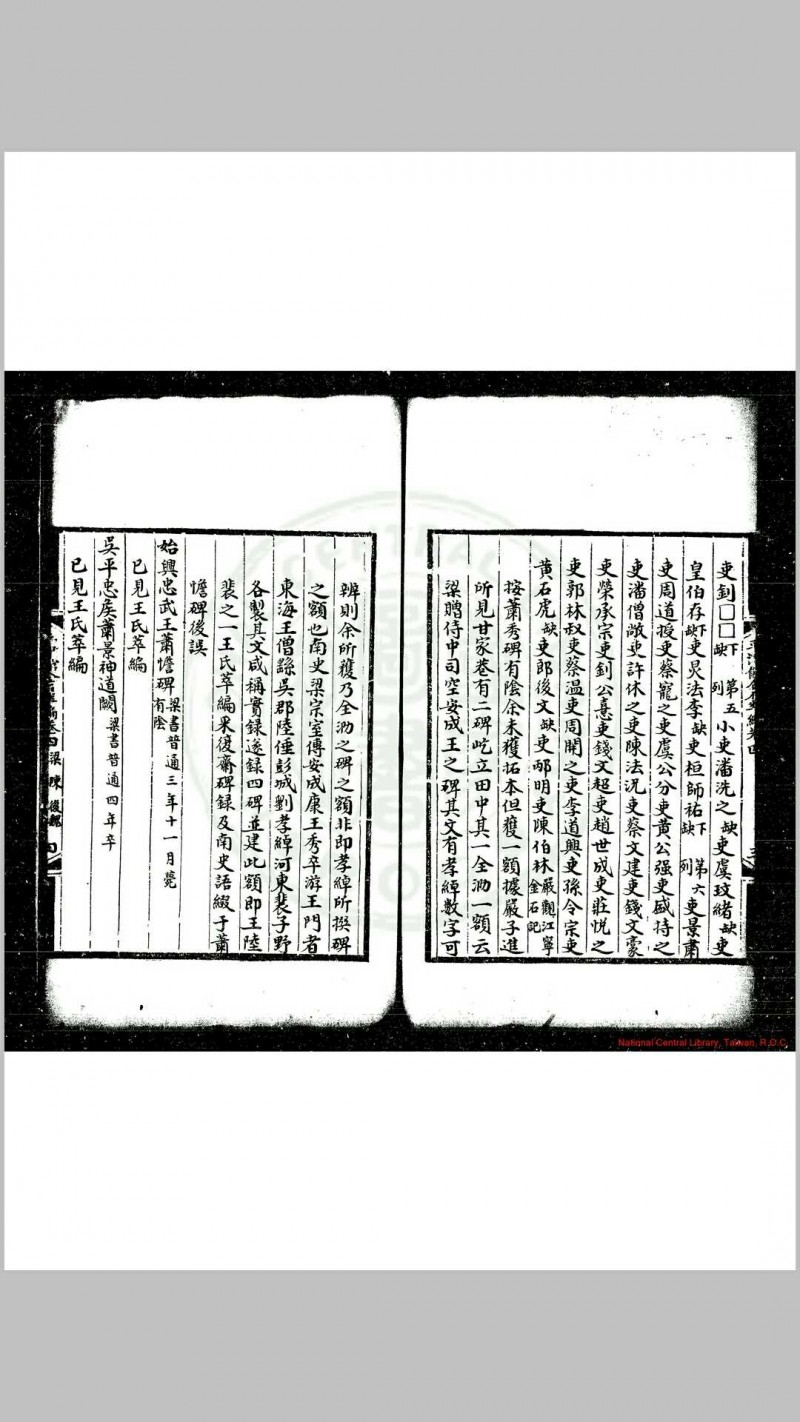 吏釗□□下缺 第五列 小吏潘洗之缺 吏虞玟緒缺 吏
皇伯存下缺 吏炅法李缺 吏桓師祐下缺 第六列 吏景肅
吏周道授吏蔡寵之吏虞公分吏黃公强吏盛持之
吏潘僧敞吏許休之吏陳法況吏蔡文建吏錢文㝱
吏榮承宗吏釗公憙吏錢文超吏趙世成吏莊悅之
吏郭林叔吏蔡温吏周開之吏李道興吏孫令宗吏
黄石虎缺吏郎後文缺吏邴明吏陳伯林嚴觀江寧金石記
按蕭秀碑有陰余未獲拓本但獲一額據嚴子進
所見甘家巷有二碑屹立田中其一全泐一額云
梁贈侍中司空安成王之碑其文有孝綽數字可
辨則余所獲乃全泐之碑之額非即孝綽所撰碑
之額也南史梁宗室傳安成康王秀卒游王門者
東海王僧孺吳郡陸倕彭城劉孝綽河東裴子野
各製其文咸稱實錄遂録四碑並建此額即王陸
裴之一王氏萃編采復齋碑録及南史語綴于蕭
憺碑後誤
始興忠武王蕭憺碑梁書普通三年十一月薨有陰
已見王氏萃編
吳平忠矦蕭景神道闕梁書普通四年卒
已見王氏萃編
National Central Library, Taiwan, R.O.C